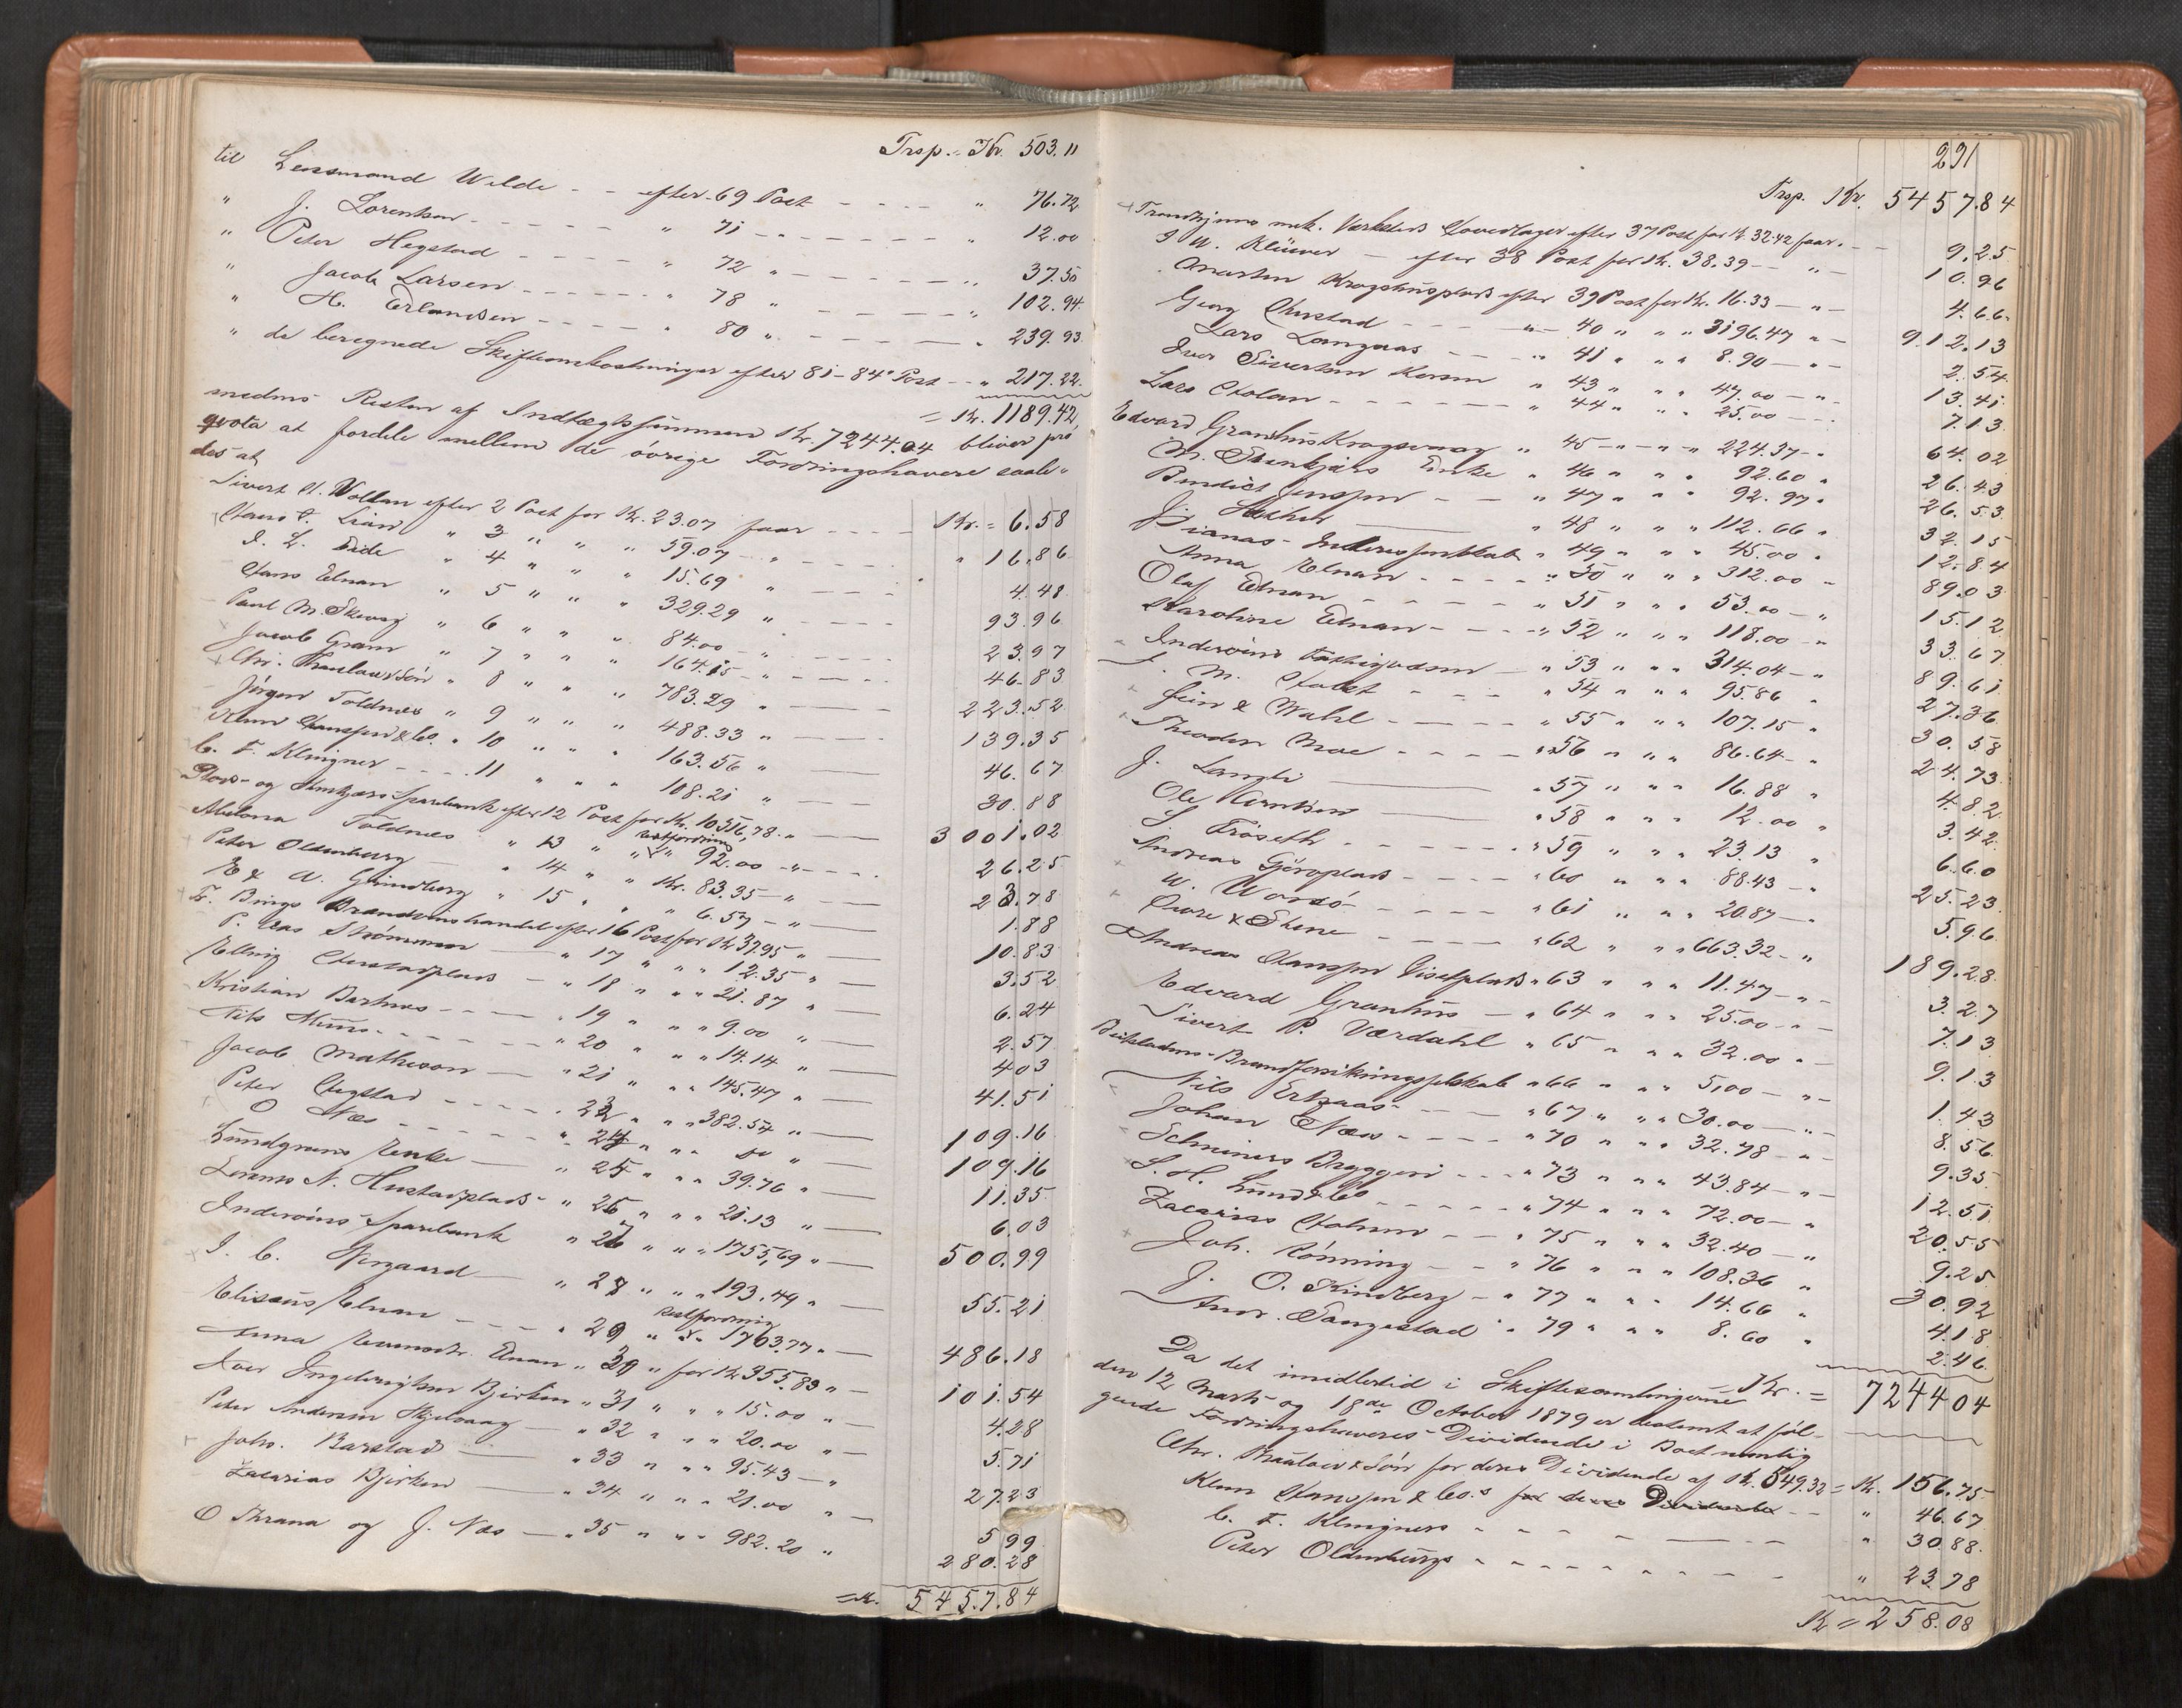 Trsp. Kr. 503.11
til Lensmand Welde - - efter 69 Post - - - - " 76.72
" J. Lorentsen - - - - - " 71 - - - - - - " 12.00
" Peter Hegstad - - - - " 72 " - - - - - " 37.50
" Jacob Larsen - - - - - " 78 " - - - - - " 102.94
" H. Erlandsen - - - - - " 80 " - - - - - " 239.93
" de beregnede Skifteomkostninger efter 81-84 Post - - " 217.22
= Kr. 1189.42
medens Resten af Indtægtssummen Kr. 7244.04 bliver pro
qvota at fordele mellem de øvrige Fordringshavere saale-
des at
Sivert A. Wollan efter 2 Post for Kr. 23.07 faar - - - - Kr. = 6.58
Hans P. Lian " 3 " " " 59.07 " - - - - " 16.86
J. L. Eide " 4 " " " 15.69 " - - - 4.48
Hans Elnan " 5 " " " 329.29 " - - - - 93.96
Paul M. Skevig " 6 " " " 84.00 - " - - - - 23.97
Jacob Gram " 7 " " " 164.15 - " - - - - 46.83
Chr. Thaulow & Søn " 8 " " " 783.29 " 223.52
Jørgen Toldnes " 9 " " " 488.33 " 139.35
Klem Hanssen & Co. " 10 " " " 163.56 " 46.67
C. F. Klingner - - - - 11 " " " 108.21 " 30.88
Stod- og Stenkjærs Sparebank efter 12 Post for Kr. 10516,78 " 3001.02
Abelona Toldnes " 13 " Restfordring " 92.00 - " - - - - 26.25
Peter Oldenburg " 14 " " Kr. 83.35 - " 23.78
E & A. Grindberg " 15 " " " 6.57 - " 1.88
Fr. Bings Brændevinshandel efter 16 Post for Kr 37.95 " 10.83
P. Aas Strømmen " 17 " " " 12.35 " 3.52
Elling Hustadplads - " 18 " " " 21.87 " 6.24
Kristian Barhnes - - - - " 19 " " " 9.00 " 2.57
Nils Muus - - - - " 20 " " " 14.14 " 4.03
Jacob Matheson " 21 " " " 145.47 " 41.51
Peter Hegstad - - - - " 23 " " " 382.54 " 109.16
O Næs - - - - - " 24 " " " do " 109.16
Lundgrens Enke " 25 " " " 39.76 " 11.35
Lorents N. Hustadplads " 26 " " " 21.13 " 6.03
Inderøens Sparebank " 27 " " " 1755,69 " 500.99
J. C. Nergaard " 28 " " " 193.49 " 55.21
Elisæus Elnan - - - " 29 " Restfordring Kr 1703.77 " 486.18
Anna Rasmusdr. Elnan " 30 " for Kr 355.83 " 101.54
Iver Ingebrigtsen Bjerken " 31 " " " 15.00 " 4.28
Peter Andersen Skjelvaag " 32 " " " 20.00 " 5.71
Johs. Barstad " 33 " " " 95.43 - " 27.23
Zacarias Bjerken " 34 " " " 21.00 " 5.99
O Thrana og J. Næs - " 35 " " " 982.20 " 280.28
= Kr. 5457.84
291
Trsp. Kr. 5457.84
Trondhjems mek. Værksteds Hovedlager efter 37 Post for Kr. 32.42 faar - - 9.25
J. N. Klüwer - efter 38 Post for Kr. 38.39 - - " - 10.96
Anesten Krogshusplads efter 39 Post for Kr. 16.33 - " - 4.66
Georg Hustad - - - - " - 40 " " " 3196.47 " - 912.13
Lars Langaas - - - - " 41 " " " 8.90 - " - 2.54
Iver Sivertsen Korsen " 43 " " " 47.00 - " - 13.41
Lars Holan - - - - - " 44 " " " 25.00 - - - 7.13
Edvard Granhus Krogsvaag " 45 - " - " - " 224.37 - " 64.02
M. Stenkjærs Enke " 46 " " " 92.60 " 26.43
Benedict Jenssen - - " 47 " " " 92.97 " 26.53
J. Sæther " 48 " " " 112.66 " 32.15
Dianas Interessentskab " 49 " " " 45.00 " 12.84
Anna Elnan - - - - " 50 " " " 312.00 - 89.03
Olaf Elnan - - - - - " 51 " " " 53.00 - " 15.12
Karoline Elnan - - - " 52 " " " 118.00 - " 33.67
Inderøens Fattigvæsen - " 53 " " " 314.04 - " 89.61
J. M. Holst - - - " 54 " " " 95.86 " 27.36
Jein & Wahl - - - - - " 55 " " " 107.15 " 30.58
Theodor Moe - - - - " 56 " " " 86.64 - " 24.73
J. Langli " 57 " " " 16.88 " 4.82
Ole Arntsen " 58 " " " 12.00 " 3.42
S Frøseth - - - - - " 59 " " " 23.13 " 6.60
Andreas Gjørvplads - - - - " 60 " " " 88.43 - " 25.23
A. Worsø - - - - " 61 " " " 20.87 - " 5.96
Huse & Skene - - - - " 62 " " " 663.32 - " 189.28
Andreas Hanssen Viselplads " 63 " " " 11.47 - " - 3.27
Edvard Granhus - " 64 " " " 25.00 - " - 7.13
Sivert P. Værdahl " 65 " " " 32.00 " - 9.13
Beitstadens Brandforsikringsselskab " 66 " " " 5,00 - " - 1.43
Nils Ertzaas - - - " 67 " " " 30.00 - " - 8.56
Johan Næss - - - - " 70 " " " 32.78 - " - 9.35
Schreiners Bryggeri - - - " 73 " " " 43.84 - " - 12.51
S. H. Lund & Co - - - - - " 74 " " " 72.00 - " 20.55
Zacarias Holmen - - " 75 " " " 32.40 - " 9.25
Joh. Rønning - - " 76 " " " 108.36 " 30.92
J. O. Kindberg - " 77 " " " 14.66 " 4.18
Andr. Tangestad " 79 " " " 8.60 " 2.46
Kr. = 7244 04
Da det imidlertid i Skiftesamlingerne
den 12 Marts og 18de October 1879 er bestemt at føl-
gende Fordringshaveres Dividende i Boet nemlig
Chr. Thaulow & Søn for deres Dividende af Kr. 549.32 = Kr. 156.75
Klem Hanssen & Co.s for deres Dividende - - " 46.67
C. F. Klingners - - - - " 30.88
Peter Oldenburgs - - - - - - - - " 23.78
Kr = 258.08